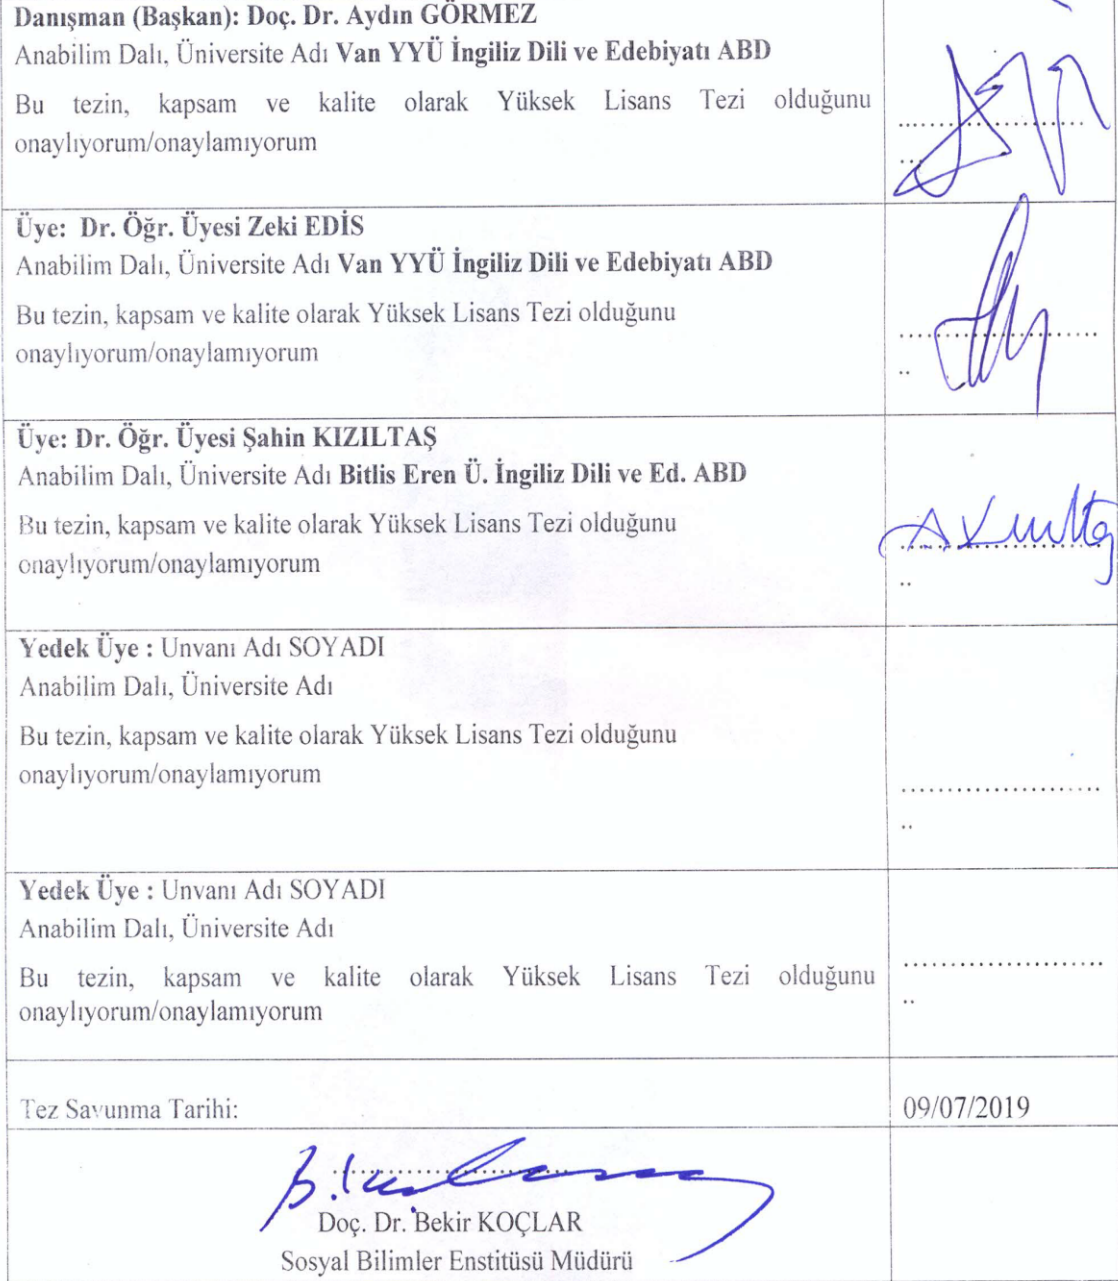 Danışman (Başkan): Doç. Dr. Aydın GÖRMEZ
Anabilim Dalı, Üniversite Adı Van YYÜ İngiliz Dili ve Edebiyatı ABD
Bu tezin, kapsam ve kalite olarak Yüksek Lisans Tezi olduğunu
onaylıyorum/onaylamıyorum
Üye: Dr. Öğr. Üyesi Zeki EDİS
Anabilim Dalı, Üniversite Adı Van YYÜ İngiliz Dili ve Edebiyatı ABD
Bu tezin, kapsam ve kalite olarak Yüksek Lisans Tezi olduğunu
onaylıyorum/onaylamıyorum
Üye: Dr. Öğr. Üyesi Şahin KIZILTAŞ
Anabilim Dalı, Üniversite Adı Bitlis Eren Ü. İngiliz Dili ve Ed. ABD
Bu tezin, kapsam ve kalite olarak Yüksek Lisans Tezi olduğunu
onaylıyorum/onaylamıyorum
Yedek Üye : Unvanı Adı SOYADI
Anabilim Dalı, Üniversite Adı
Bu tezin, kapsam ve kalite olarak Yüksek Lisans Tezi olduğunu
onaylıyorum/onaylamıyorum
Yedek Üye : Unvanı Adı SOYADI
Anabilim Dalı, Üniversite Adı
Bu tezin, kapsam ve kalite olarak Yüksek Lisans Tezi olduğunu
onaylıyorum/onaylamıyorum
Tez Savunma Tarihi: 09/07/2019
Doç. Dr. Bekir KOÇLAR
Sosyal Bilimler Enstitüsü Müdürü